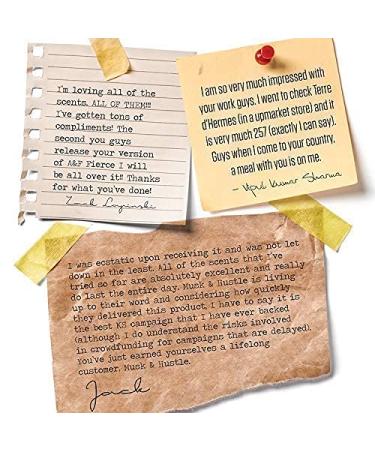 I'm loving all of the
scents. ALL OF THEM!!!
I've gotten tons of
compliments! The
second you guys
release your version
of A&F Fierce I will
be all over it!! Thanks
for what you've done!
Zach Lupinski
I am so very much impressed with
your work guys. I went to check Terre
d'Hermes (in a upmarket store) and it
is very much 257 (exactly I can say).
Guys when I come to your country,
a meal with you is on me.
- Vipul Kumar Sharma
I was ecstatic upon receiving it and was not let
down in the least All of the scents that I've
tried so far are absolutely excellent and really
do last the entire day. Musk & Hustle is living
up to their word and considering how quickly
they delivered this product, I have to say it is
the best KS campaign that I have ever backed
(although I do understand the risks involved
in crowdfunding for campaigns that are delayed).
You've just earned yourselves a lifelong
customer, Musk & Hustle.
Jack